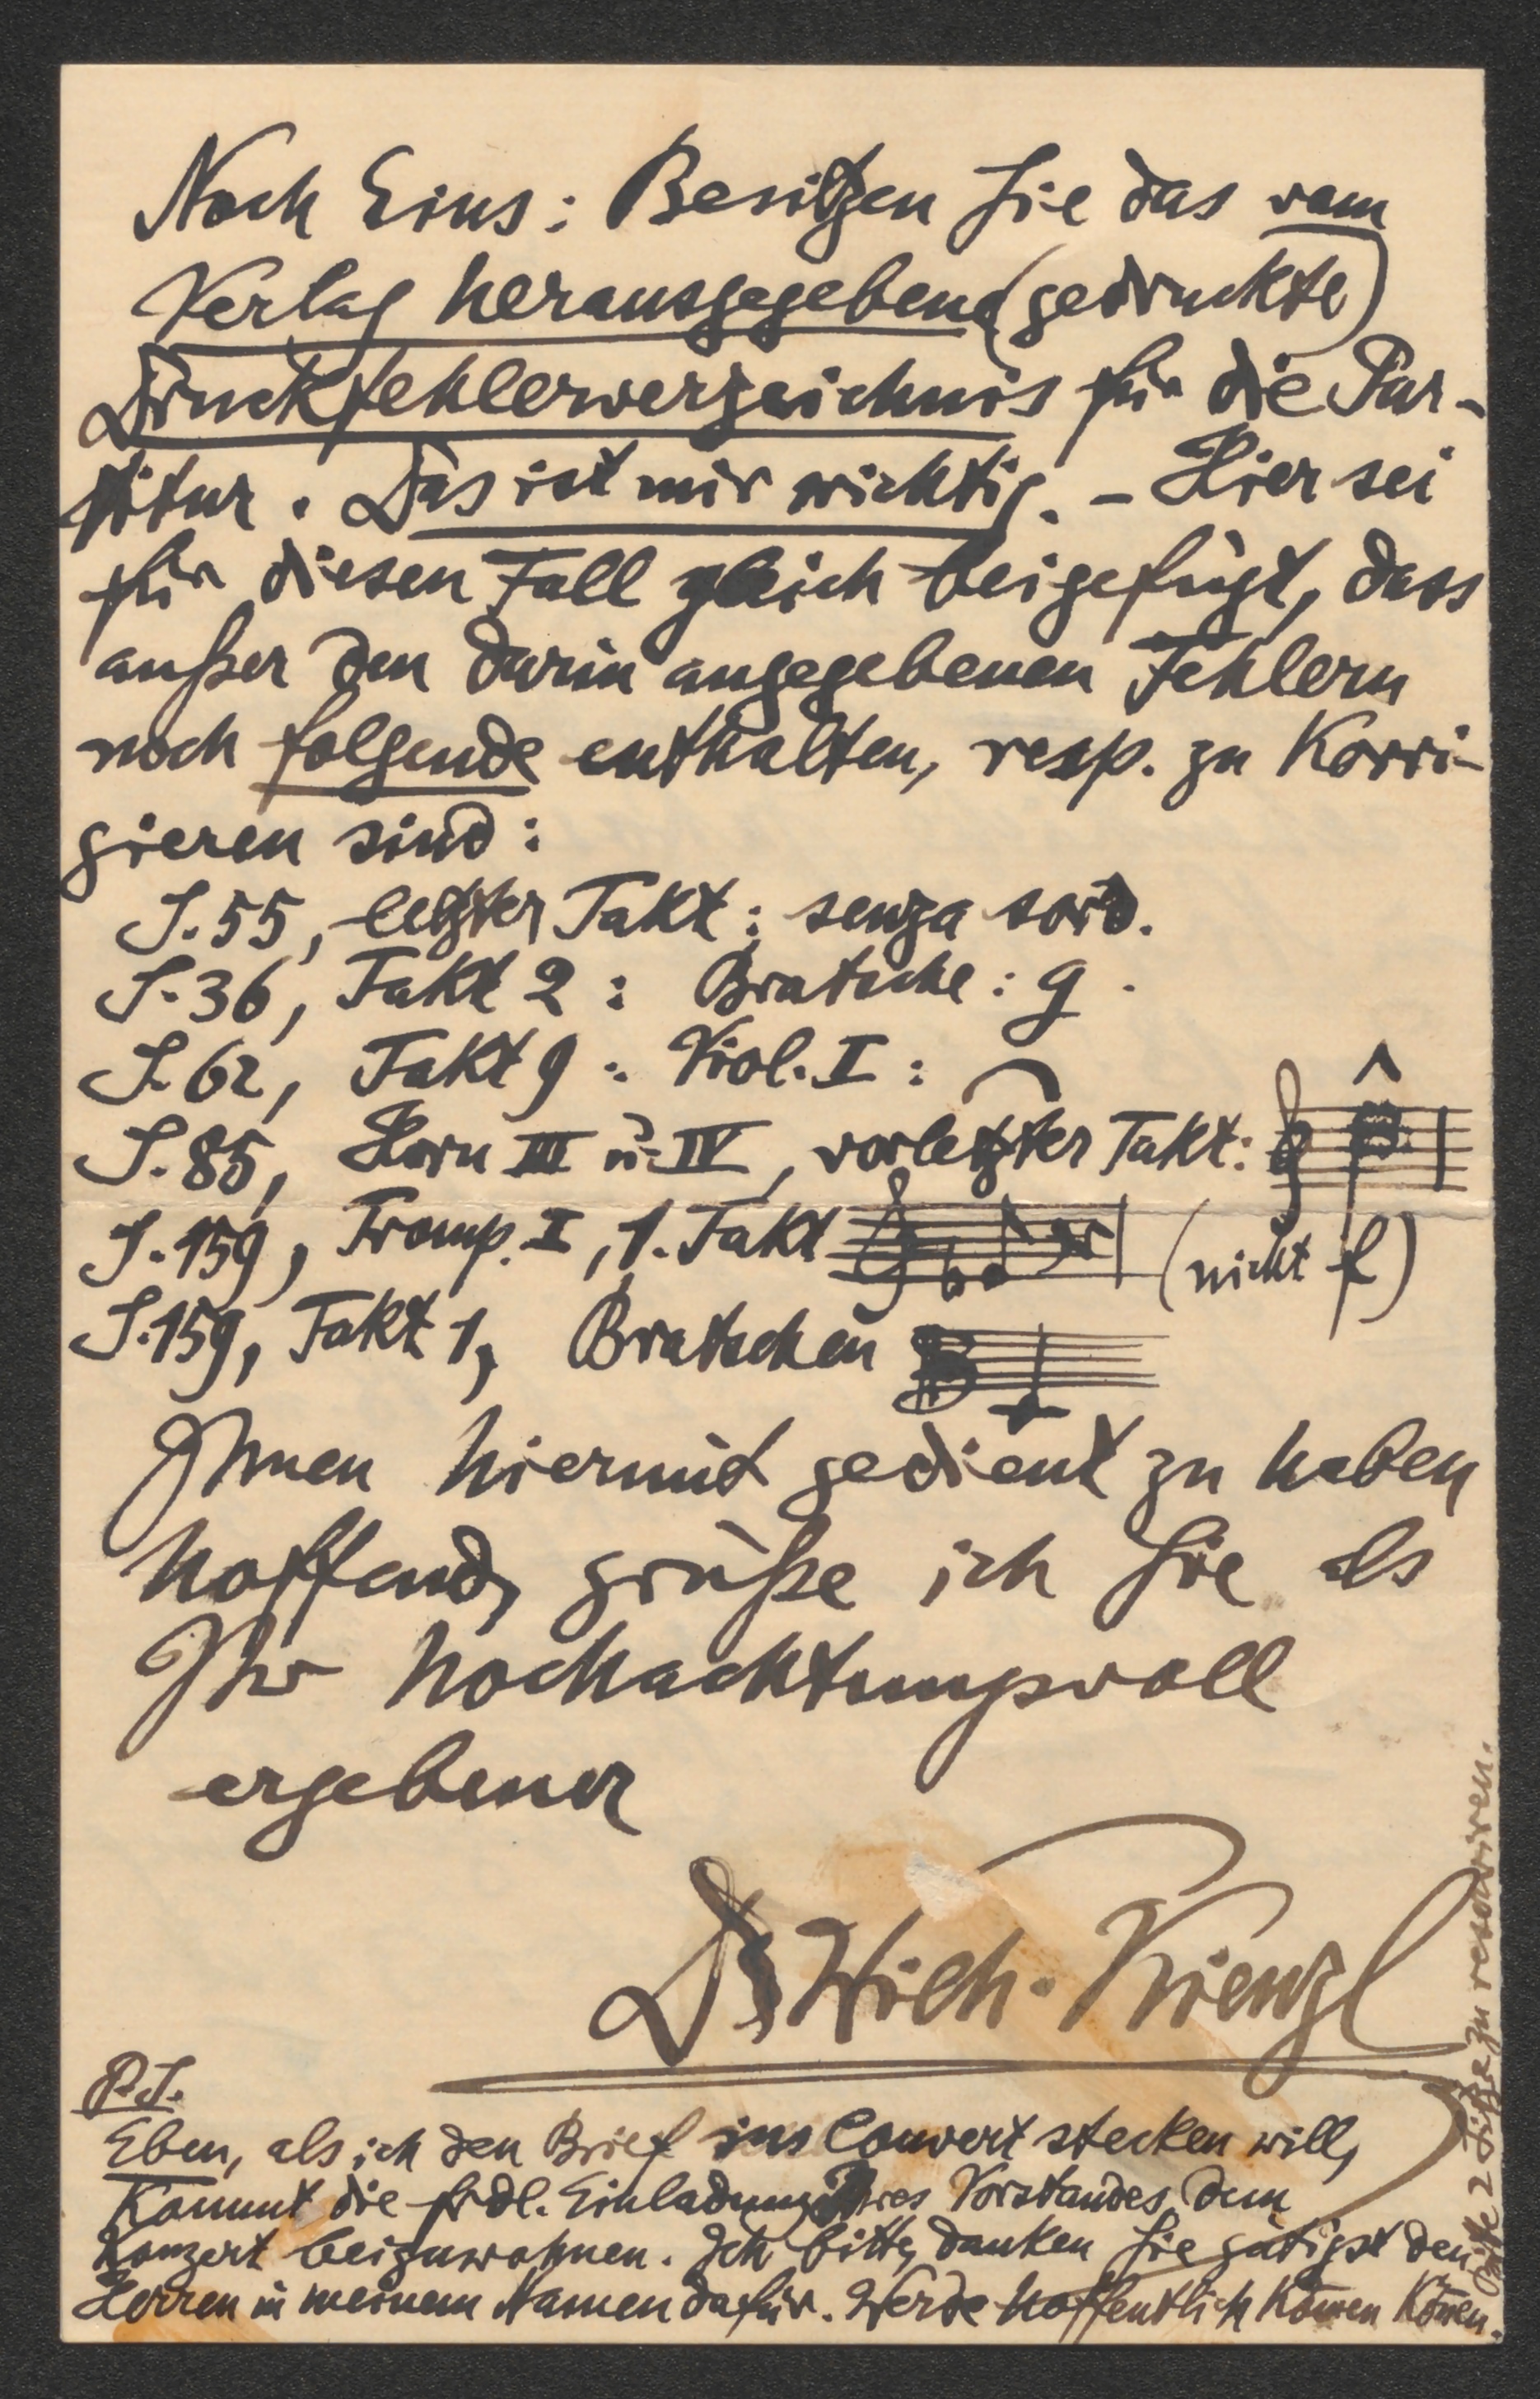 Noch Eins: Besitzen Sie das vom
Verlag herausgegebene (gedruckte)
Druckfehlerverzeichnis für die Par-
titur. Das ist mir wichtig. – Hier sei
für diesen Fall gleich beigefügt, dass
außer den darin angegebenen Fehlern
noch folgende enthalten, resp. zu korri-
gieren sind:
S. 55, letzter Takt: senza sord.
S. 36, Takt 2: Bratsche: g.
S. 62, Takt 9: Viol. I:
S. 85, Horn III u. IV, vorletzter Takt:
S. 159, Tromp. I, 1. Takt (nicht f)
S. 159, Takt 1, Bratschen
Ihnen hiermit gedient zu haben
hoffend, grüße ich Sie als
Ihr hochachtungsvoll
ergebener
Dr Wilh. Kienzl
P.S.
Eben, als ich den Brief ins Couvert stecken will,
kommt die frdl. Einladung Ihres Vorstandes, dem
Konzert beizuwohnen. Ich bitte, danken Sie gütigst den
Herren in meinem Namen dafür. Werde hoffentlich kom̄en kön̄en.
Bitte 2 Sitze zu reserviren.